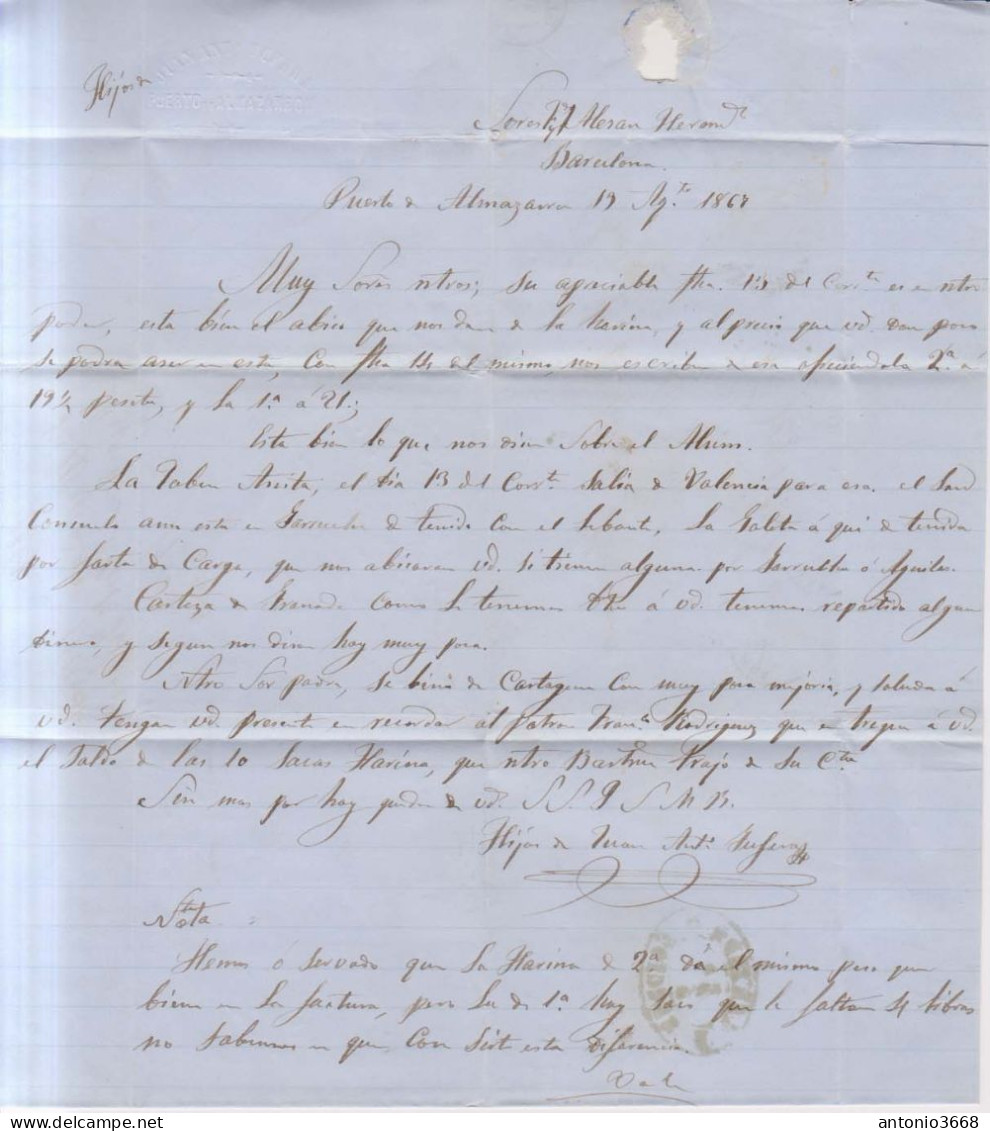 Hijos de
PUERTO ALMAZARRON
Sores Mesan Herm.s
Barcelona.
Puerto de Almazarron 19 Ag.to 1867
Muy Sores ntros; su apreciable fha. 13 del Corr.te es en ntro
poder, esta bien el abiso que nos dan de la harina, y al precio que vd. dan poco
se podra aser en esta, Con fha 14 del mismo, nos escriben de esa ofreciendola 2.a á
19 1/2 peseta, y la 1.a á 21.;
Esta bien lo que nos disen sobre el Alum.
La Taben Asita, el dia 13 del Corr.te salia de Valencia para esa. el San
Consuelo aun esta en Garrucha de tenido Con el lebante, La Goleta á qui de tenida
por farta de Carga, que nos abisaran vd. si tienen alguna por Garrucha ó Aguilas.
Corteza de Granada como le tenemos dho á vd. tenemos repartido algun
dinero, y segun nos disen hay muy poca.
Ntro Sor padre, se bino de Cartagena Con muy poca mejoria, y saluda á
vd. tengan vd. presente en recordar al patron Fran.co Rodriguez que en tregue á vd.
el Saldo de las 10 Sacas Harina, que ntro Bartme trajo de Su C.ta
Sin mas por hoy quedan de vd. S S Q S M B.
Hijos de Juan Ant.o
Nota
Hemos ó servado que la Harina de 2.a dá el mismo peso que
biene en la factura, pero la de 1.a hay saco que le faltan 4 libras
no sabemos en que Con sist esta diferencia.
Vale
antonio3668